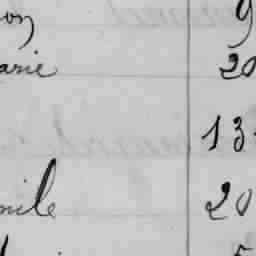 on 9
arie 20
13
mile 20